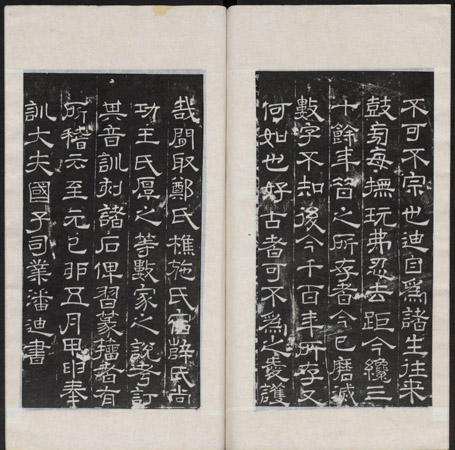 不可不宗也迪自爲諸生往來
鼓旁每撫玩弗忍去距今纔三
十餘年昔之所存者今已磨滅
數字不知後今千百年所存又
何如也好古者可不爲之愛護
哉間取鄭氏樵施氏宿薛氏尚
功王氏厚之等數家之說考訂
其音訓刻諸石俾習篆籀者有
所稽云至元己卯五月甲申奉
訓大夫國子司業潘迪書